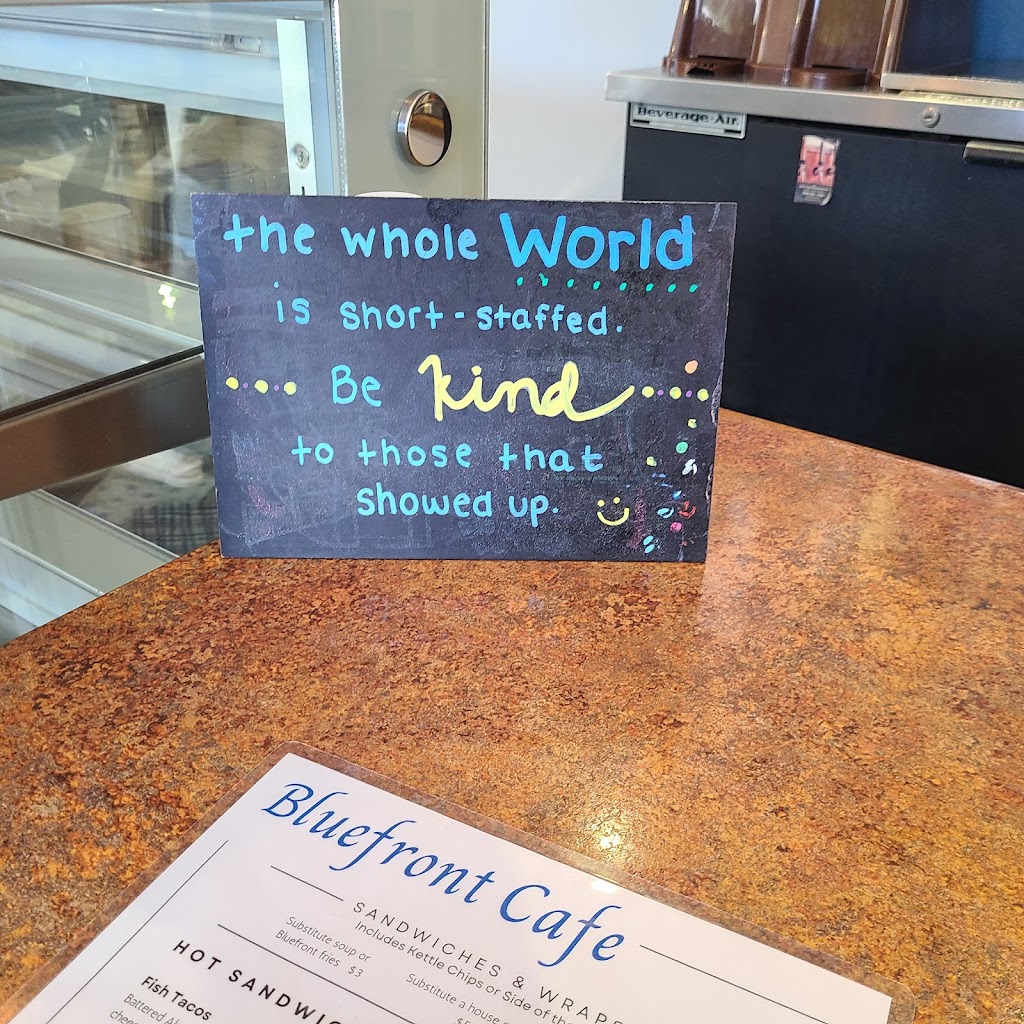 Beverage-Air.
the whole World
is short-staffed.
Be kind
to those that
showed up.
Bluefront Cafe
SANDWICHES & WRAPS
Includes Kettle Chips or Side of the
Substitute soup or
Bluefront fries $3
Substitute a house
HOT
Fish Tacos
Battered